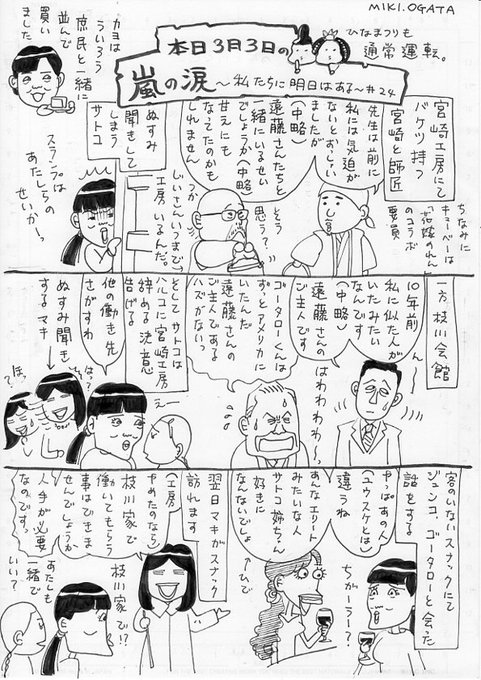 MIKI.OGATA
ひなまつりも
通常運転。
本日3月3日の
嵐の涙
〜私たちに明日はある〜#24
カヨは
ういろう
庶民と一緒に
並んで
買い
ました
宮崎工房にて
バケツ持つ
宮崎と師匠
先生は前に
私には気迫が
ないとおっしゃい
ましたが
(中略)
遠藤さんたちと
一緒にいるせい
でしょうか(中略)
甘えにも
なってたのかも
しれません
ぬすみ
聞きして
しまう
サトコ
スランプは
あたしらの
せいかーっ
つか
じいさんいつまで
工房いるんだ。
そう
思う?
ちなみに
キューベーは
「花嫁のれん」
のコラボ
要員
一方 枝川会館
10年前
私に似た人が
いたみたい
なんです
(中略)
遠藤さんの
ご主人です
はわわわわ〜
ん
ゴータローくんは
ずっとアメリカに
いたんだ
遠藤さんの
ご主人である
ハズがないっ
そして サトコは
ハルコに宮崎工房
辞める決意
告げる
他の働き先
さがすわ
えー
ぬすみ聞きも
するマキ
はっ?
ほっ
客のいないスナックにて
ジュンコ、ゴータローと会った
話をする
やっぱあの人
(ユウスケとは)
違うね
あんなエリート
みたいな人
サトコ姉ちん
好きに
なんないでしょ
ひで
ちがーうー?
翌日マキがスナック
訪れます
(工房
やめたのなら)
枝川家で
働いてもらう
事はできま
せんでしょうか
人手が必要
なのですっ
枝川家で!?
あたしも
一緒で
いい?